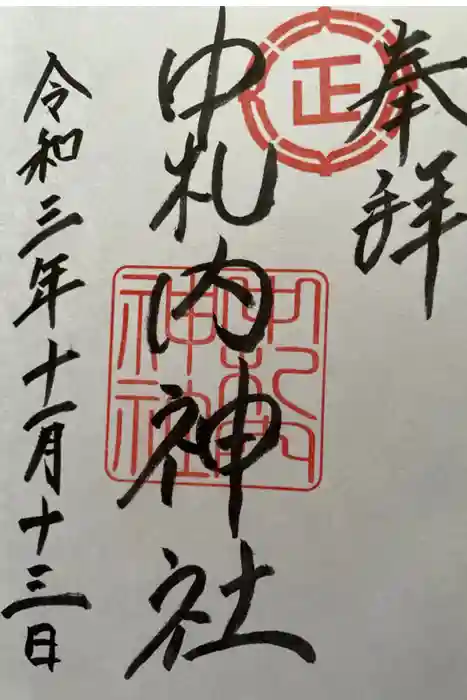 奉拝
正
中札内神社
中札内神社
令和三年十一月十三日